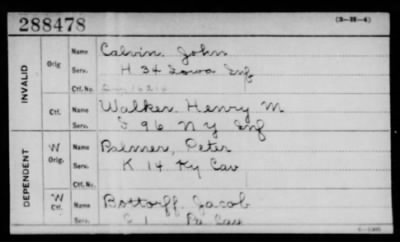 288478
(3-1868-4)
INVALID
Orig
Name Calvin, John
Serv. H 34 Iowa Inf
Ctf. No.
Ctf.
Name Walker, Henry M
Serv. 96 N Y Inf
DEPENDENT
W
Orig.
Name Palmer, Peter
Serv. K 14 Ky Cav
Ctf. No.
W
Ctf.
Name Bottorff, Jacob
Serv. 1 Cav